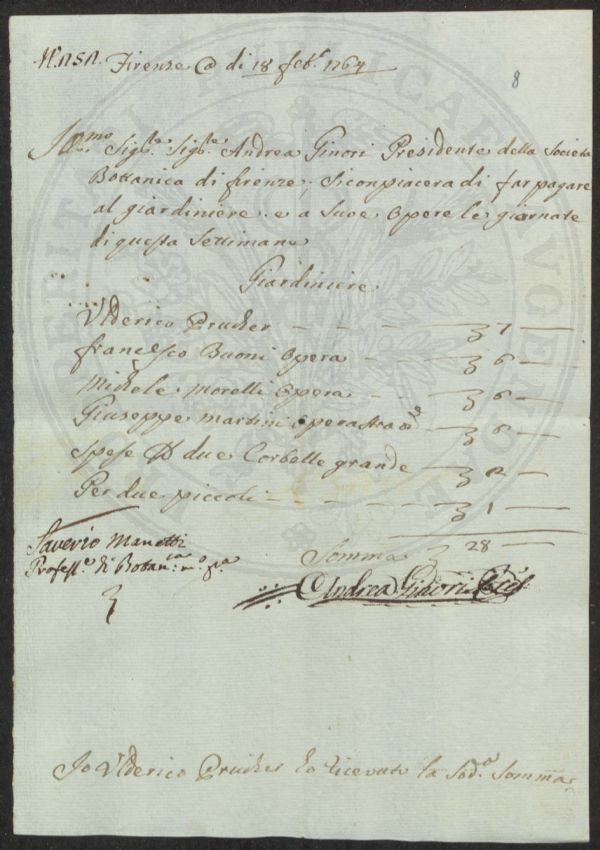 Firenze @ di 18 feb.º 1764
8
Ill.mo Sig.re Sig.re Andrea Ginori Presidente della Societa
Bottanica di firenze, Siconpiacera di far pagare
al giardiniere e a Sue Opere le giornate
di questa Settimana
Giardiniere
Ulderico Prucker - - - 7
francesco Buoni Opera - 6
Michele Morelli Opera - - 6
Giuseppe Martini Opera 6
Spese due Corbelle grande 2
Per due piccoli - - - 1
Saverio Manetti
Profess.e di Botan.ca
Somma 28
Andrea Ginori
Io Ulderico Prucker ho ricevuto la Sod.a Somma